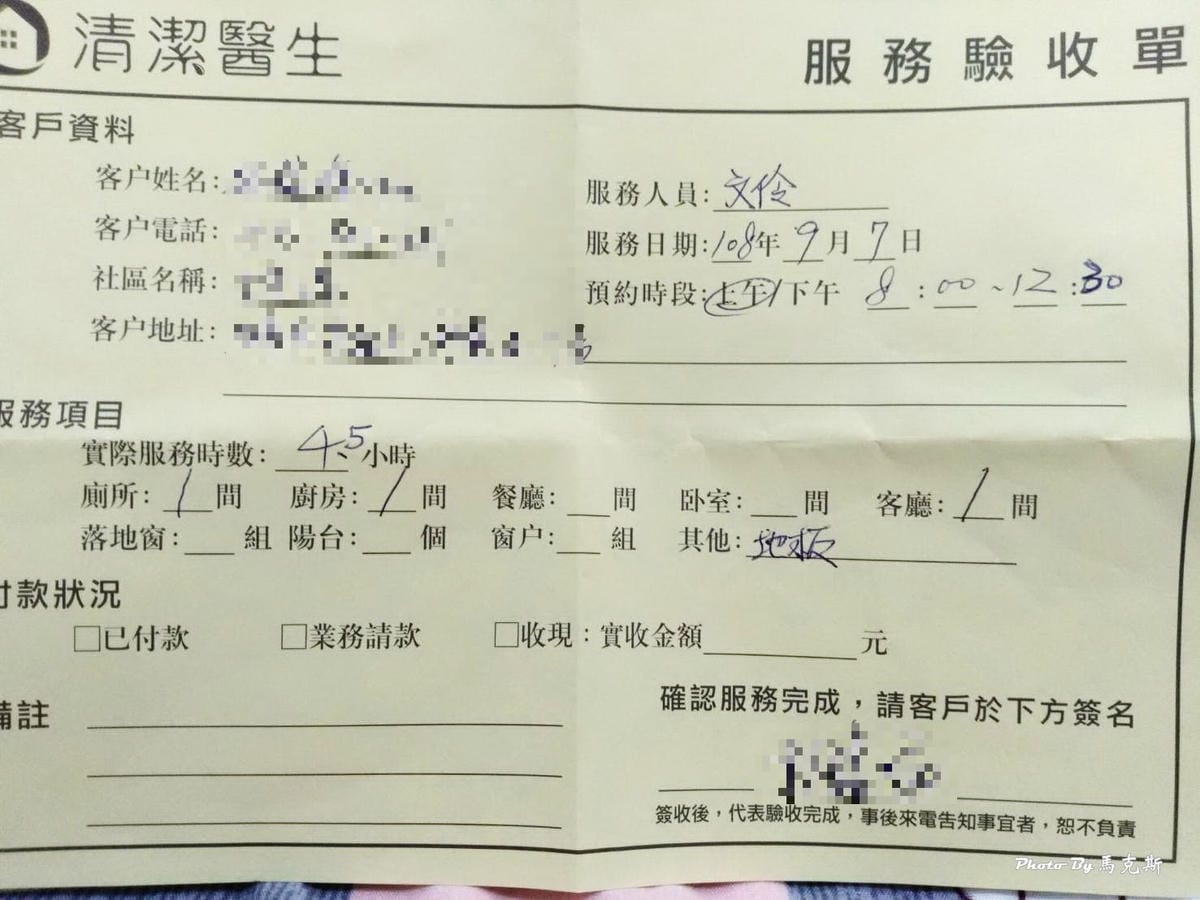 清潔醫生 服務驗收單
客戶資料
客戶姓名: 服務人員: 文伶
客戶電話: 服務日期: 108年 9月 7日
社區名稱: 預約時段: 上午/下午 8:00~12:30
客戶地址:
服務項目
實際服務時數: 4.5 小時
廁所: 1 間 廚房: 1 間 餐廳: 間 卧室: 間 客廳: 1 間
落地窗: 組 陽台: 個 窗户: 組 其他: 地板
付款狀況
□已付款 □業務請款 □收現：實收金額 元
備註
確認服務完成，請客戶於下方簽名
簽收後，代表驗收完成，事後來電告知事宜者，恕不負責
Photo By 馬克斯